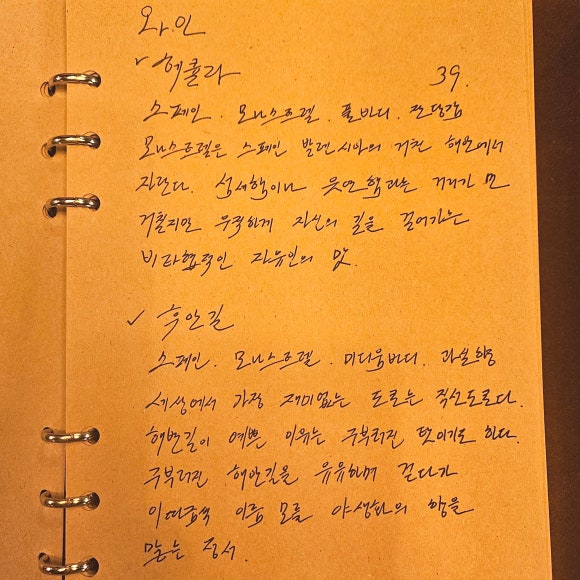 와.인
헤쿨라 39.
스페인. 모나스트렐. 풀바디. 단당감
모나스트렐은 스페인 발렌시아의 거친 해안에서
자란다. 섬세함이나 우아함과는 거리가 먼
거칠지만 우직하게 자신의 길을 걸어가는
비타협적인 자유인의 맛.
후안길
스페인. 모나스트렐. 미디움바디. 과실향
세상에서 가장 재미없는 도로는 직선도로다.
해변길이 예쁜 이유는 구부러진 탓이기도 하다.
구부러진 해안길을 유유하며 걷다가
이따금씩 이름 모를 야생화의 향을
맡는 정서.